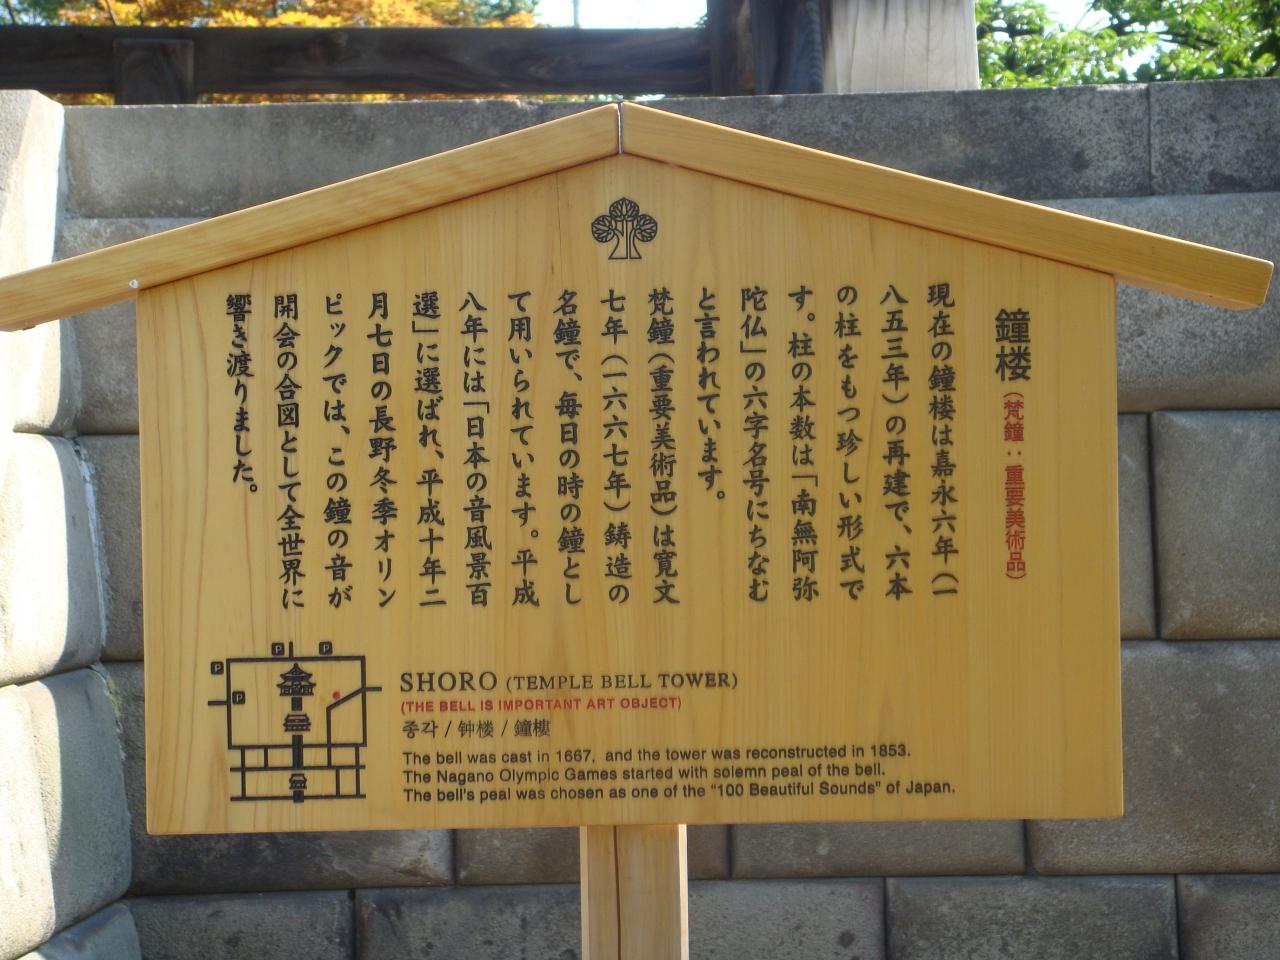 鐘楼（梵鐘：重要美術品）
現在の鐘楼は嘉永六年（一
八五三年）の再建で、六本
の柱をもつ珍しい形式で
す。柱の本数は「南無阿弥
陀仏」の六字名号にちなむ
と言われています。
梵鐘（重要美術品）は寛文
七年（一六六七年）鋳造の
名鐘で、毎日の時の鐘とし
て用いられています。平成
八年には「日本の音風景百
選」に選ばれ、平成十年二
月七日の長野冬季オリン
ピックでは、この鐘の音が
開会の合図として全世界に
響き渡りました。
P P
P
P
SHORO (TEMPLE BELL TOWER)
(THE BELL IS IMPORTANT ART OBJECT)
종각 / 钟楼 / 鐘樓
The bell was cast in 1667, and the tower was reconstructed in 1853.
The Nagano Olympic Games started with solemn peal of the bell.
The bell's peal was chosen as one of the "100 Beautiful Sounds" of Japan.